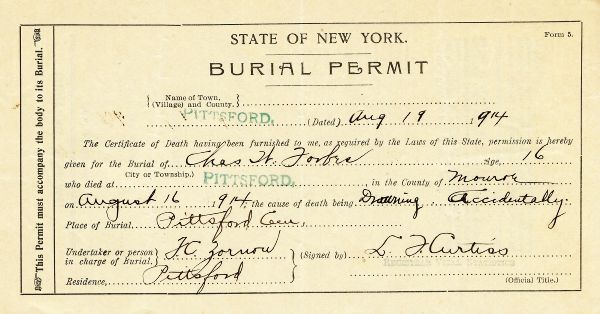 STATE OF NEW YORK.
Form 5.
BURIAL PERMIT
This Permit must accompany the body to its Burial.
Name of Town, (Village) and County.
PITTSFORD. (Dated) Aug 19 1914
The Certificate of Death having been furnished to me, as required by the Laws of this State, permission is hereby
given for the Burial of Chas W. Forbes Age, 16
City or Township.)
who died at PITTSFORD. in the County of Monroe
on August 16 1914 the cause of death being Drowning Accidentally.
Place of Burial, Pittsford Cem,
Undertaker or person in charge of Burial. F.C. Zornow (Signed by) L F Curtiss
Residence, Pittsford (Official Title.)